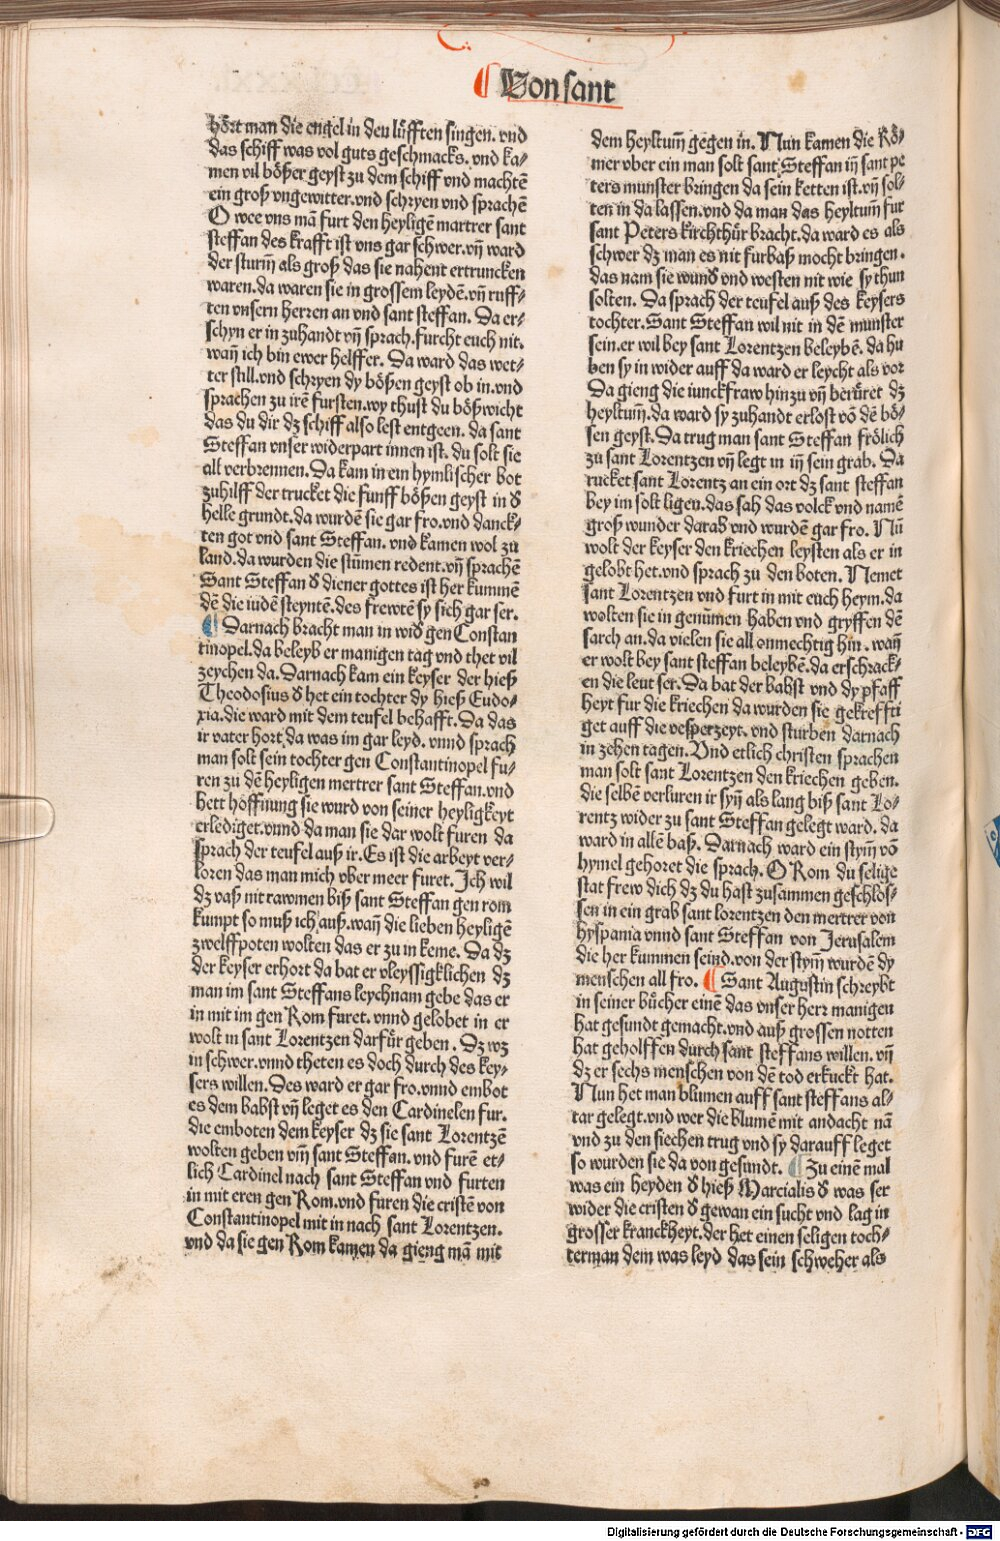 ¶ Von sant
hört man die engel in den lüfften singen. vnd
das schiff was vol guts geschmacks. vnd ka⸗
men vil bößer geyst zu dem schiff vnd machtē
ein groß vngewitter.vnd schryen vnd sprachē
O wee vns mā furt den heyligē martrer sant
steffan des krafft ist vns gar schwer.vn̄ ward
der sturm̄ als groß das sie nahent ertruncken
waren.da waren sie in grossem leydē.vn̄ ruff⸗
ten vnsern herren an vnd sant steffan. Da er⸗
schyn er in zuhandt vn̄ sprach.furcht euch nit.
wan̄ ich bin ewer helffer. Da ward das wet⸗
ter still.vnd schryen dy bößen geyst ob in.vnd
sprachen zu irē fursten.wy thust du bößwicht
das du dir dz schiff also lest entgeen. da sant
Steffan vnser widerpart innen ist. du solt sie
all verbrennen. Da kam in ein hymlischer bot
zuhilff der trucket die funff bößen geyst in d̕
helle grundt.da wurdē sie gar fro.vnd danck⸗
ten got vnd sant Steffan. vnd kamen wol zu
land.da wurden die stūmen redent.vn̄ sprachē
Sant Steffan d̕ diener gottes ist her kummē
dē die iudē steyntē.des frewtē sy sich gar ser.
¶ Darnach bracht man in wid̕ gen Constan
tinopel.da beleyb er manigen tag vnd thet vil
zeychen da. Darnach kam ein keyser der hieß
Theodosius d̕ het ein tochter dy hieß Eudo⸗
xia.die ward mit dem teufel behafft. Da das
ir vater hort.da was im gar leyd. vnnd sprach
man solt sein tochter gen Constantinopel fu⸗
ren zu dē heyligen mertrer sant Steffan.vnd
hett hoffnung sie wurd von seiner heyligkeyt
erlediget.vnnd da man sie dar wolt furen da
sprach der teufel auß ir. Es ist die arbeyt ver⸗
loren das man mich vber meer furet. Ich wil
dz vaß nit rawmen biß sant Steffan gen rom
kumpt so muß ich auß.wan̄ die lieben heyligē
zwelffpoten wolten das er zu in keme. Da dz
der keyser erhort da bat er vleyssigklichen dz
man im sant Steffans leychnam gebe das er
in mit im gen Rom furet. vnnd gelobet in er
wolt in sant Lorentzen darfür geben. Dz wz
in schwer.vnnd theten es doch durch des key⸗
sers willen. Des ward er gar fro.vnnd embot
es dem babst vn̄ leget es den Cardinelen fur.
die emboten dem keyser dz sie sant Lorentzē
wolten geben vm̄ sant Steffan. vnd furē et⸗
lich Cardinel nach sant Steffan vnd furten
in mit eren gen Rom.vnd furen die cristē von
Constantinopel mit in nach sant Lorentzen.
vnd da sie gen Rom kamen da gieng mā mit
dem heyltum̄ gegen in. Nun kamen die Rö⸗
mer vber ein man solt sant Steffan in sant pe
ters munster bringen da sein ketten ist.vn̄ sol⸗
ten in da lassen.vnd da man das heyltum̄ fur
sant Peters kirchthür bracht.da ward es als
schwer dz man es nit furbaß mocht bringen.
das nam sie wund̕ vnd westen nit wie sy thun
solten. Da sprach der teufel auß des keysers
tochter.Sant Steffan wil nit in dē munster
sein.er wil bey sant Lorentzen beleybē.da hu
ben sy in wider auff da ward er leycht als vor
Da gieng die iunckfraw hinzu vn̄ berüret dz
heyltum̄.da ward sy zuhandt erlost vō dē bö⸗
sen geyst. Da trug man sant Steffan frölich
zu sant Lorentzen vn̄ legt in in sein grab. Da
rucket sant Lorentz an ein ort dz sant steffan
bey im solt ligen.das sah das volck vnd namē
groß wunder darab vnd wurdē gar fro. Nū
wolt der keyser den kriechen leysten als er in
gelobt het.vnd sprach zu den boten. Nemet
sant Lorentzen vnd furt in mit euch heym.da
wolten sie in genūmen haben vnd gryffen dē
sarch an.da vielen sie all onmechtig hin. wan̄
er wolt bey sant steffan beleybē.da erschrack⸗
en die leut ser. Da bat der babst vnd dy pfaff
heyt fur die kriechen da wurden sie gekreffti
get auff die vesperzeyt. vnd sturben darnach
in zehen tagen. Vnd etlich christen sprachen
man solt sant Lorentzen den kriechen geben.
die selbē verluren ir syn̄ als lang biß sant Lo⸗
rentz wider zu sant Steffan gelegt ward. da
ward in allē baß. Darnach ward ein stym̄ vō
hymel gehoret die sprach. O Rom du selige
stat frew dich dz du hast zusammen geschlos⸗
sen in ein grab sant lorentzen den mertrer von
hyspania vnnd sant Steffan von Jerusalem
die her kummen seind.von der stym̄ wurdē dy
menschen all fro. ¶ Sant Augustin schreybt
in seiner bücher einē das vnser herr manigen
hat gesundt gemacht.vnd auß grossen notten
hat geholffen durch sant steffans willen. vn̄
dz er sechs menschen von dē tod erkuckt hat.
Nun het man blumen auff sant steffans al⸗
tar gelegt.vnd wer die blumē mit andacht nā
vnd zu den siechen trug vnd sy darauff leget
so wurden sie da von gesundt. ¶ Zu einē mal
was ein heyden d̕ hieß Marcialis d̕ was ser
wider die cristen d̕ gewan ein sucht vnd lag in
grosser kranckheyt.der het einen seligen toch⸗
terman dem was leyd das sein schweher als
Digitalisierung gefördert durch die Deutsche Forschungsgemeinschaft - DFG